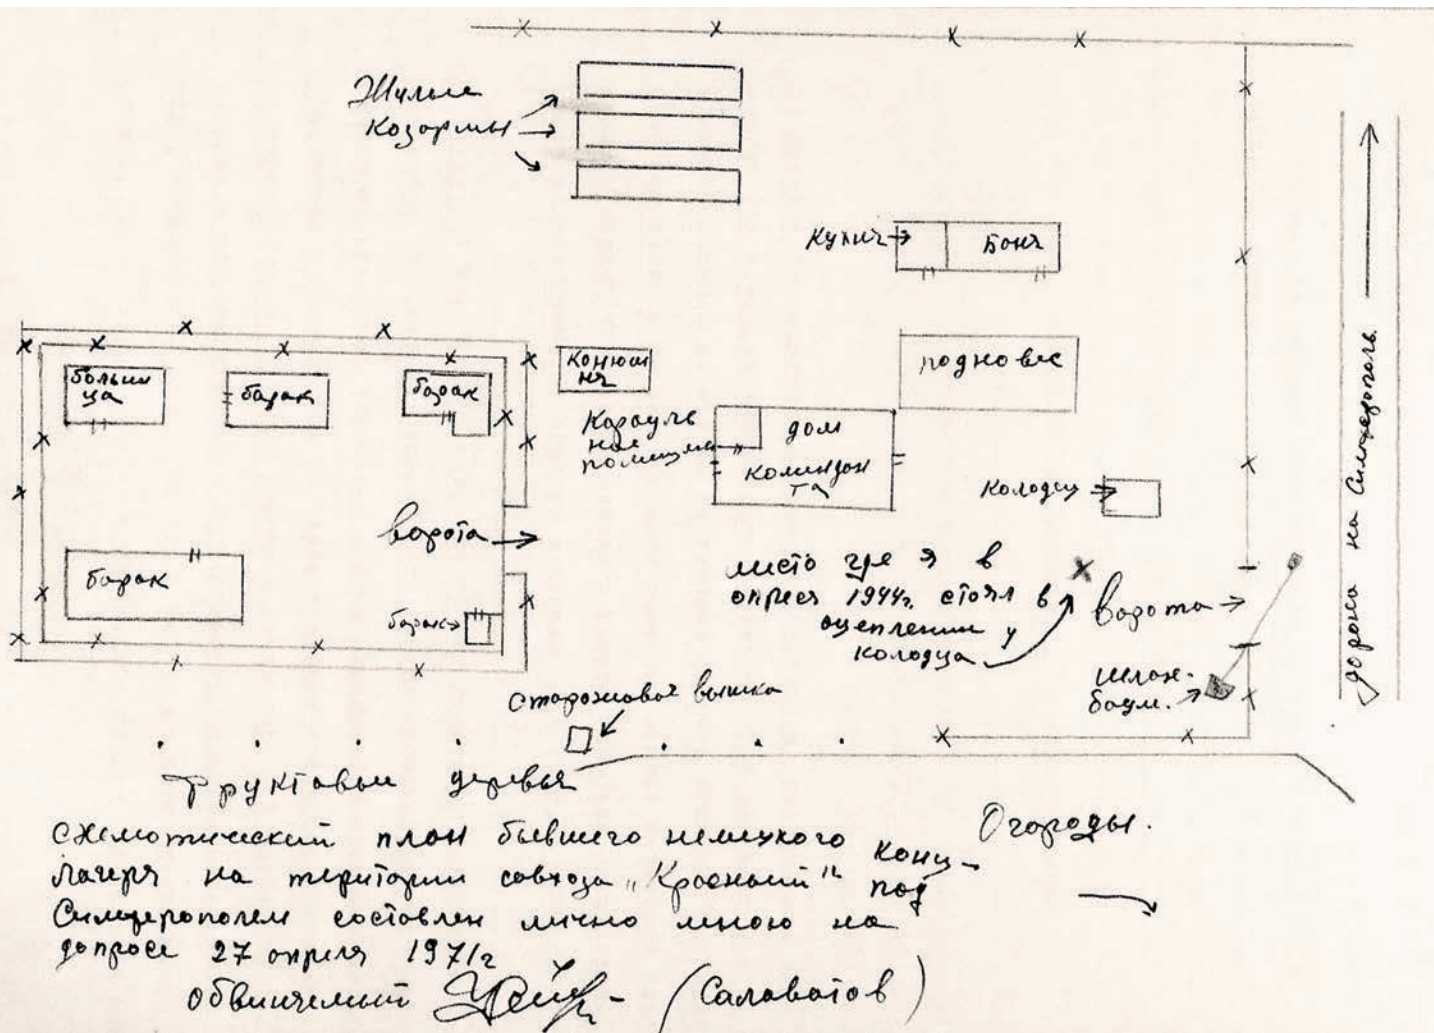 Жилые
козармы
кухня
Баня
больни
ца
барак
барак
конюш
ня
подновес
дорога на Симферополь
Карауль
ное
помещение
дом
коминдан
та
колодец
ворота
барак
барак
место где я в
апреле 1944г. стоял в
оцеплении у
колодца
ворота
шлаг-
баум.
сторожовая вышка
Фруктовыи деревья
Огороды.
схематический план бывшего немецкого конц-
лагеря на територии совхоза „Красный" под
Симферополем составлен лично мною на
допросе 27 апреля 1971г
обвиняемый (Салаватов)